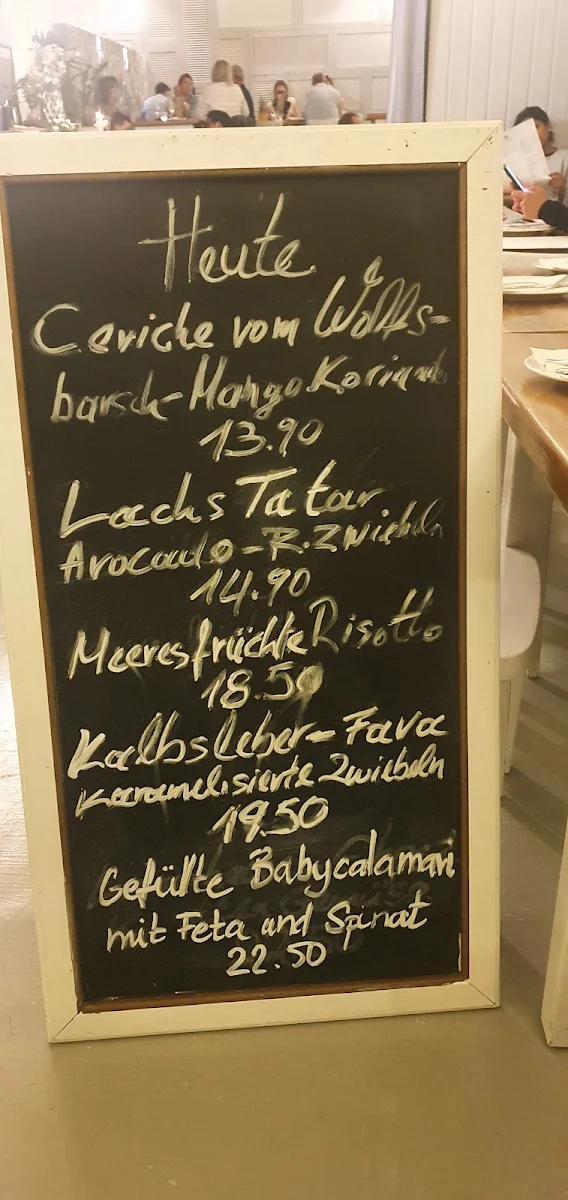 Heute
Ceviche vom Wolfs-
barsch-Mango Koriander
13.90
Lachs Tatar
Avocado-R.Zwiebeln
14.90
Meeresfrüchte Risotto
18.50
Kalbsleber-Fava
Karamelisierte Zwiebeln
19.50
Gefüllte Babycalamari
mit Feta und Spinat
22.50